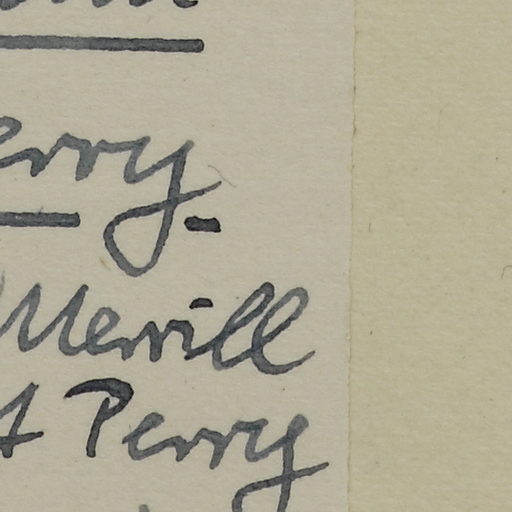 erry
Merrill
Perry